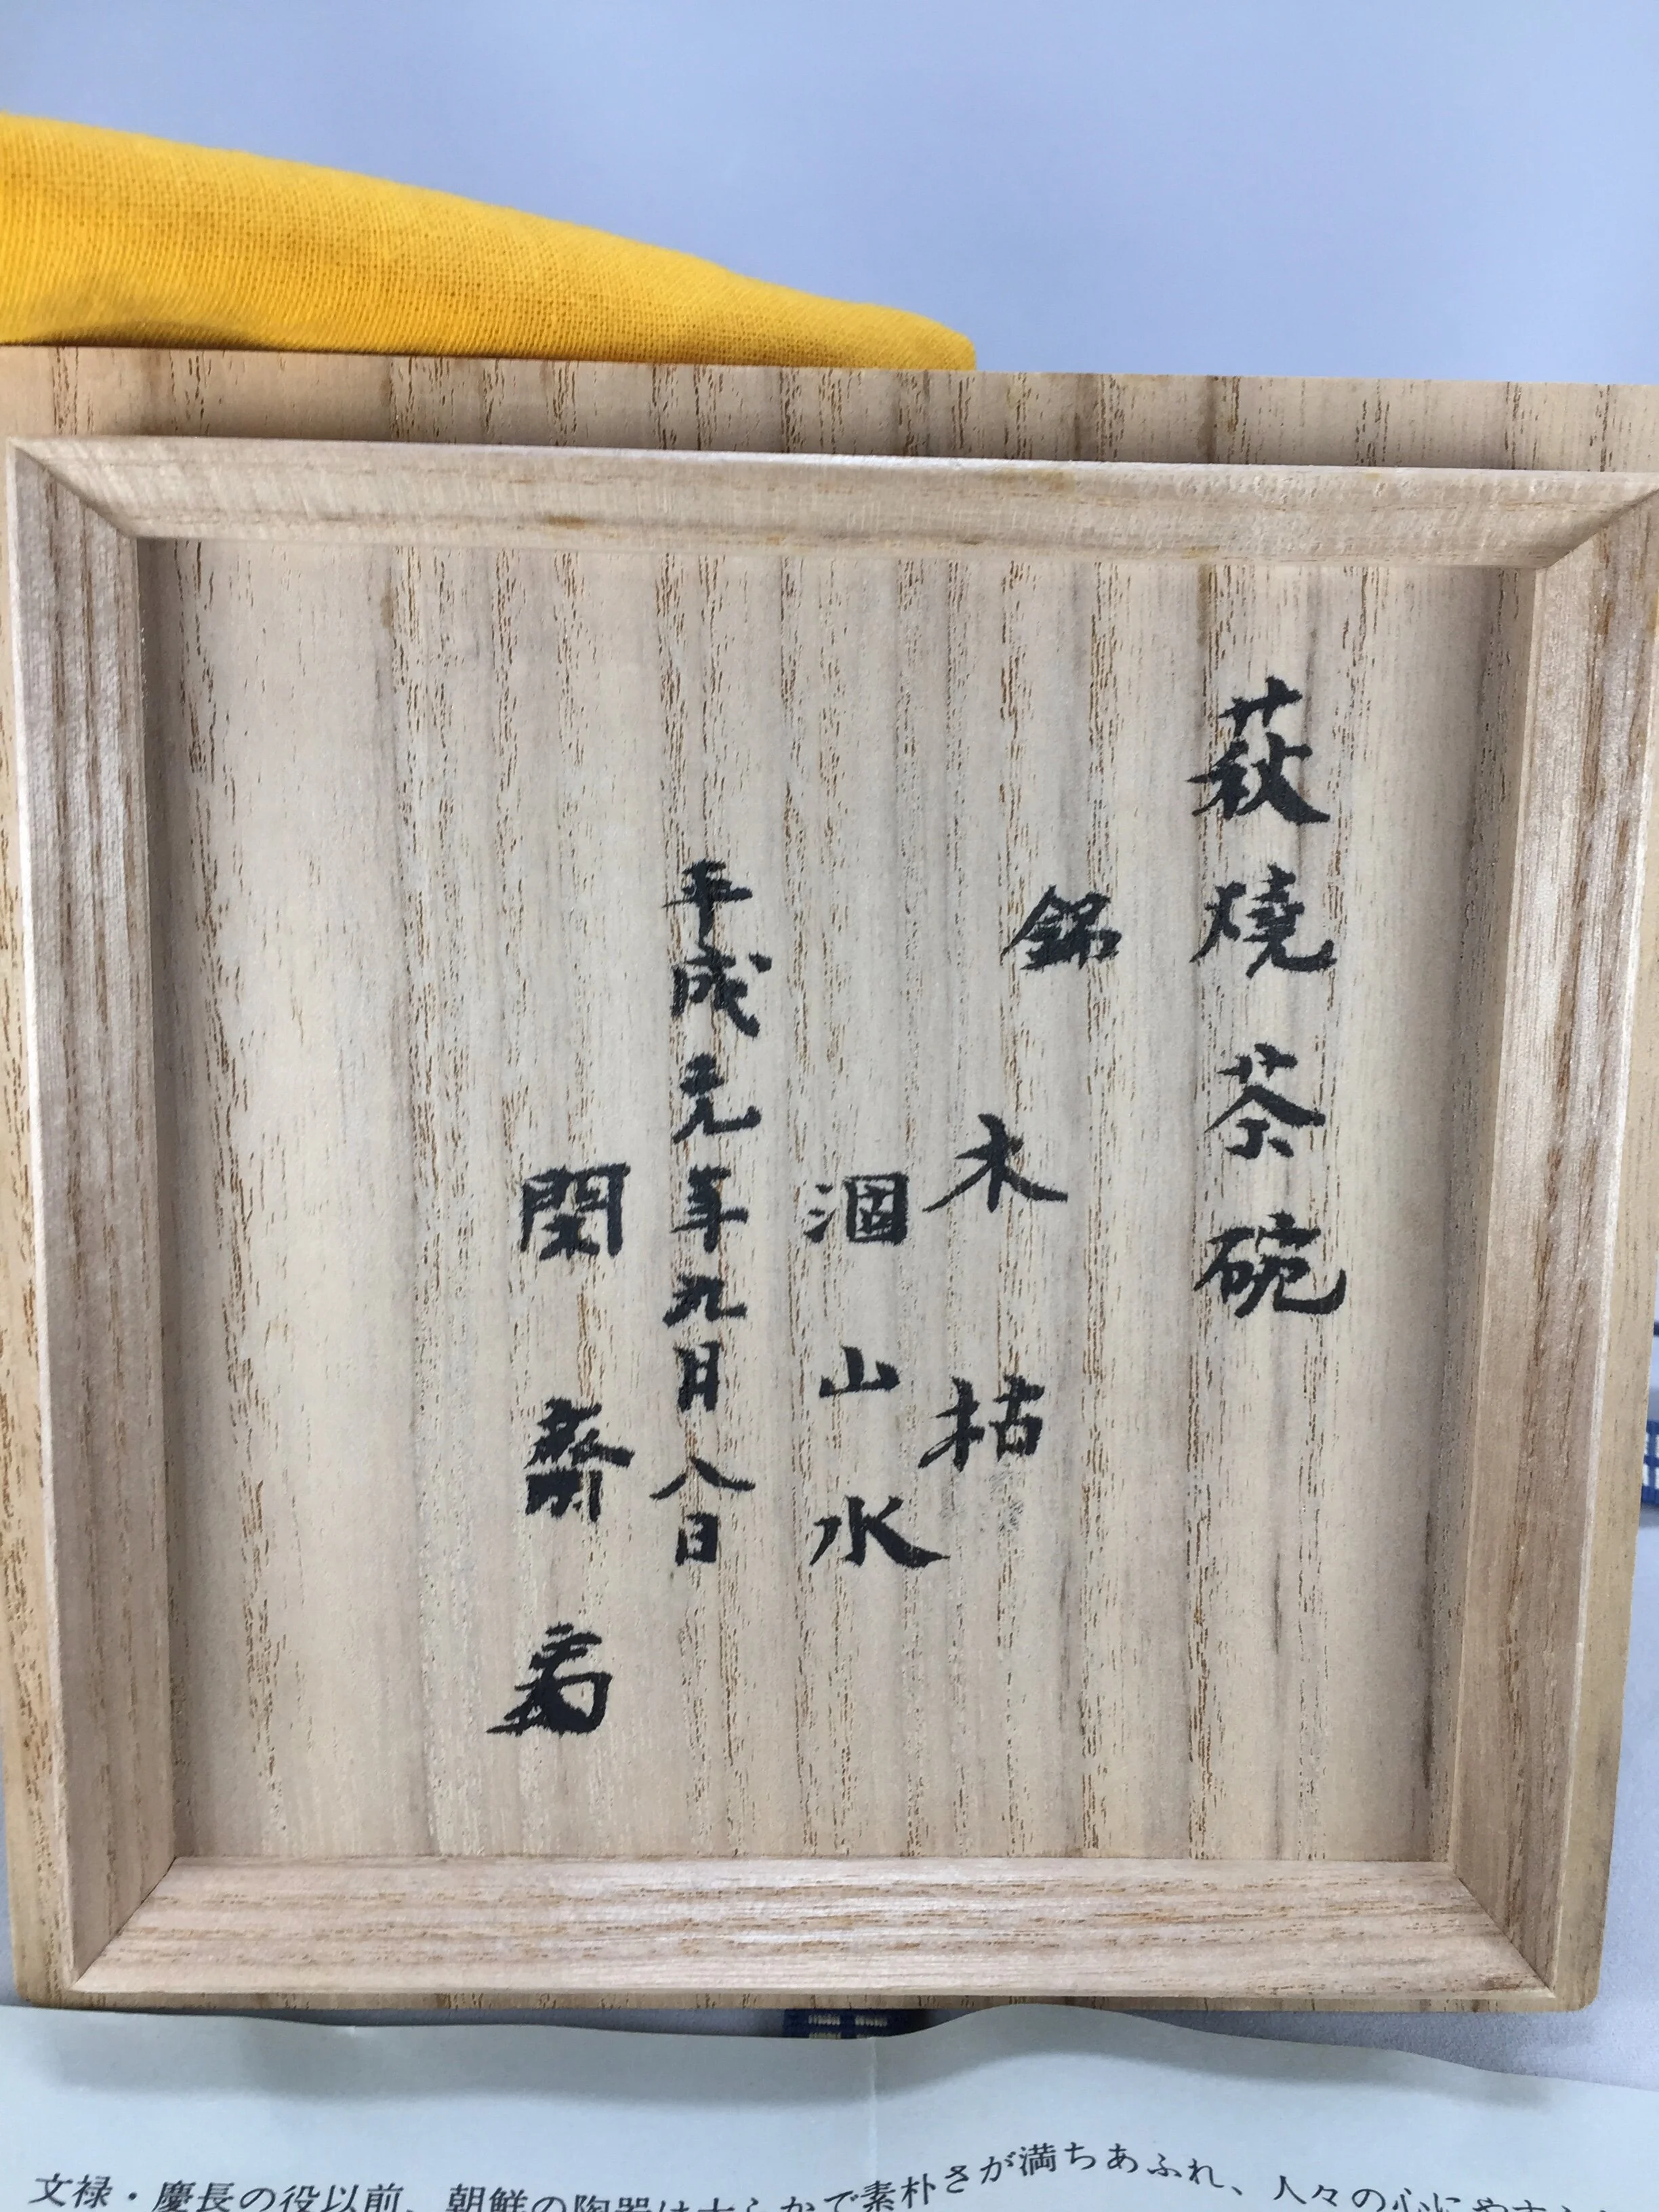 萩焼茶碗
銘
木枯
涸山水
平成元年九月八日
閑齋
文禄・慶長の役以前、朝鮮の陶器は大らかで素朴さが満ちあふれ、人々の心に